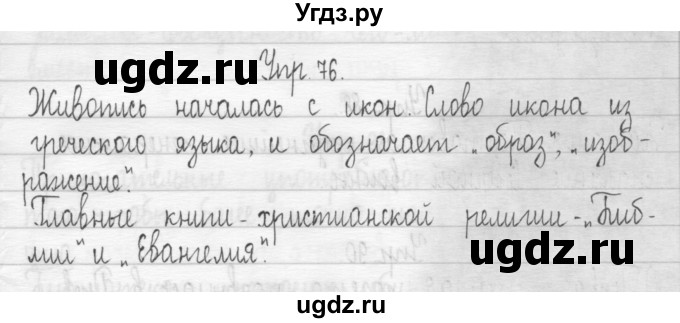 Угдз.ру
ugdz.ru ugdz.ru
Упр. 76.
Живопись началась с икон. Слово икона из
греческого языка, и обозначает „образ", „изоб-
ражение".
Главные книги - христианской религии - „Биб-
лии" и „Евангелия".
ugdz.ru ugdz.ru
ugdz.ru